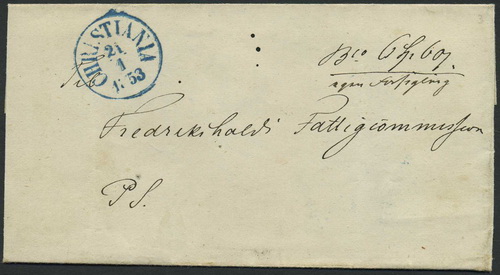 CHRISTIANIA
21
1
1853
Bco Ch. 601.
egen Forsegling
Til
Fredrikshalds Fattigcommission
P.S.
3